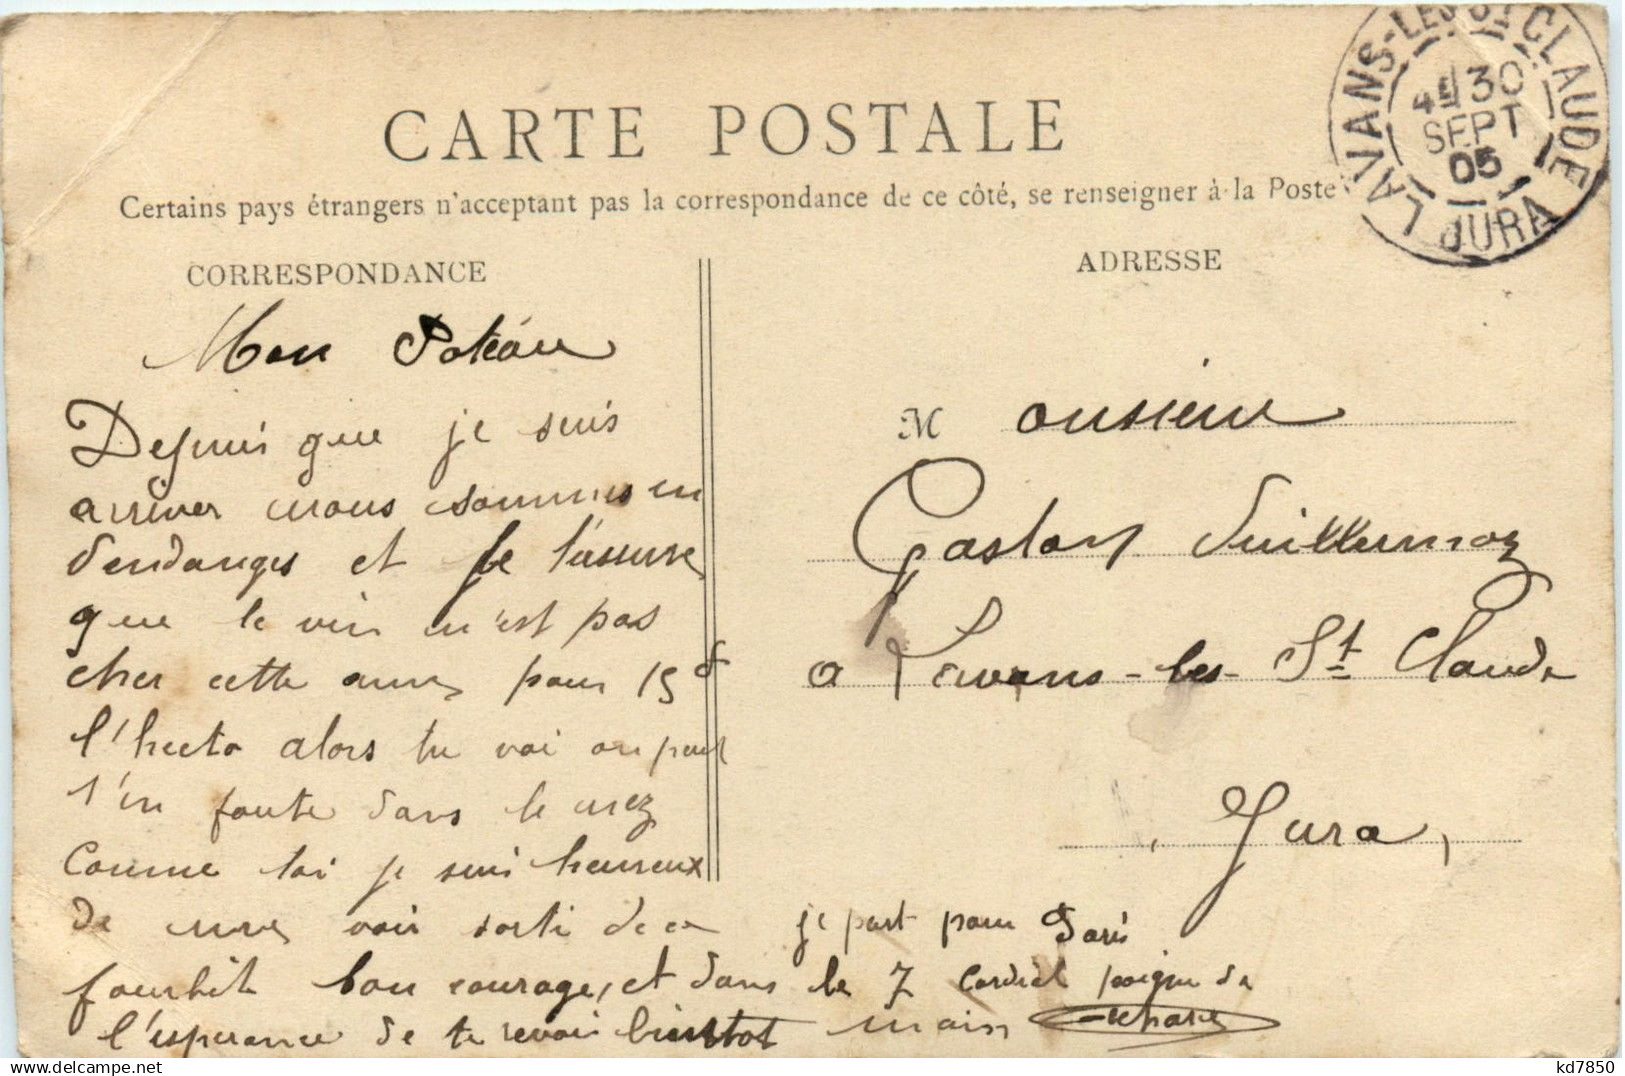 CARTE POSTALE
Certains pays étrangers n'acceptent pas la correspondance de ce côté, se renseigner à la Poste
LAVANS-LES-ST CLAUDE
4E 30
SEPT
05
JURA
CORRESPONDANCE
Mon Poteau
Depuis que je suis
arriver nous sommes en
Vendanges et je t'assure
que le vin n'est pas
cher cette anné pour 15f
l'hecto alors tu voi on peut
s'en foutre dans le nez
Comme toi je suis heureux
de me voir sorti de ce
fourbit bon courage, et dans
l'esperance de te revoir bientot
je part pour Paris
le 7 Cordial poigne de
main
ADRESSE
Monsieur
Gaston Vuillermoz
a Lavans-les-St Claude
Jura,
kd7850